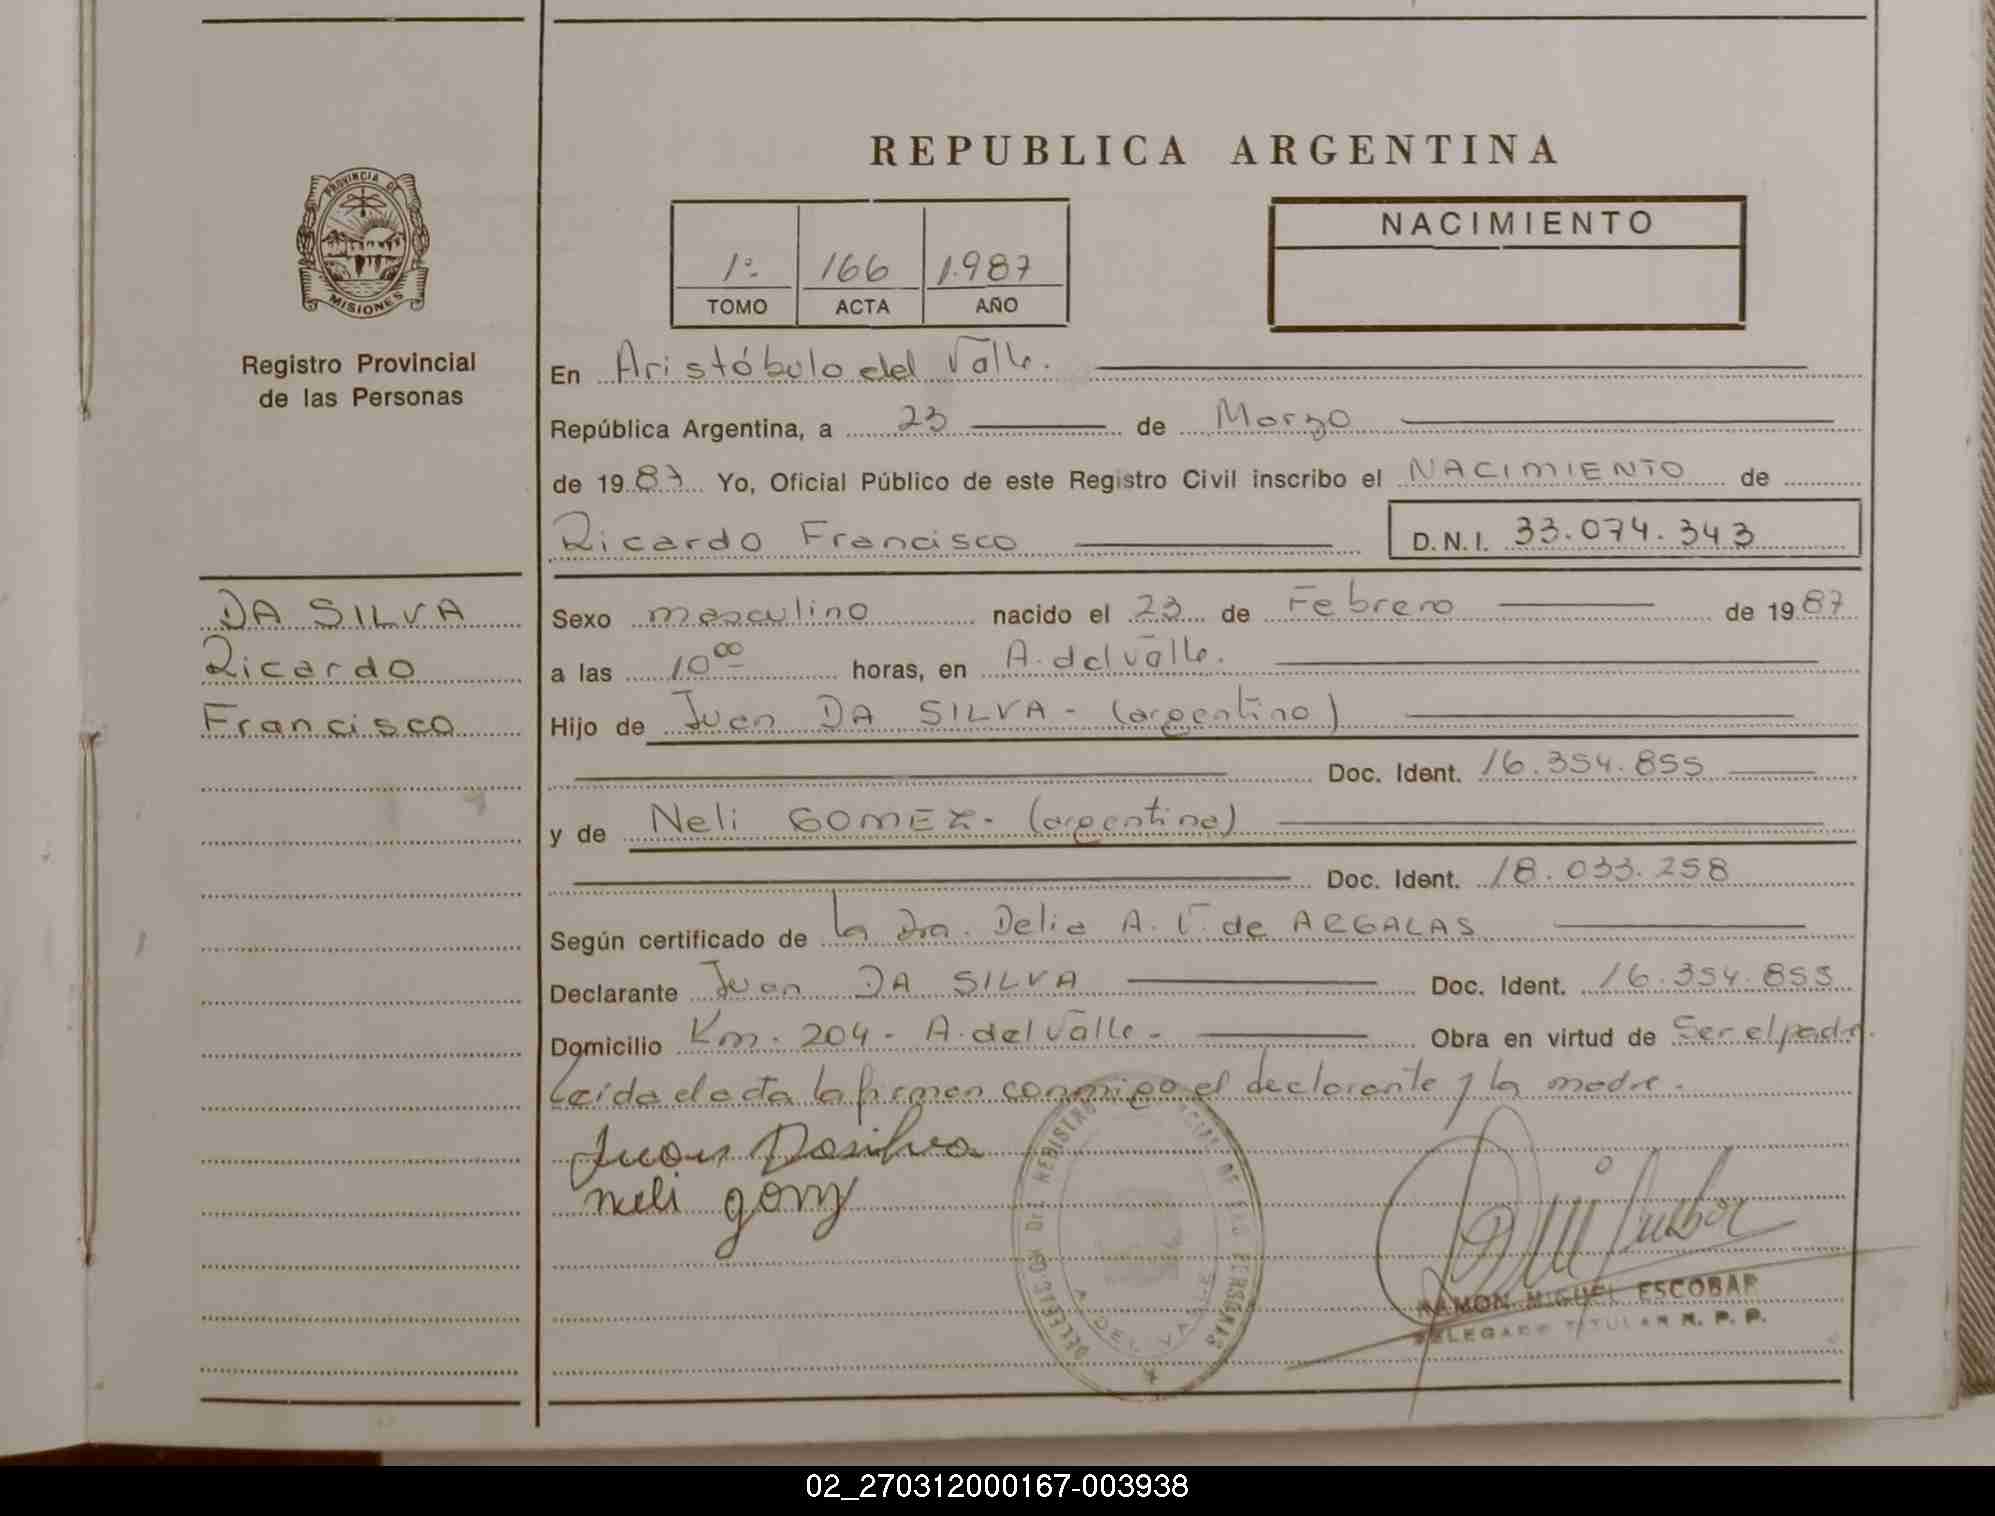 REPUBLICA ARGENTINA
PROVINCIA DE
MISIONES
Registro Provincial
de las Personas
1º 166 1.987
TOMO ACTA AÑO
NACIMIENTO
En Aristóbulo del Valle.
República Argentina, a 23 de Marzo
de 1987 Yo, Oficial Público de este Registro Civil inscribo el NACIMIENTO de
Ricardo Francisco D.N.I. 33.074.343
DA SILVA
Ricardo
Francisco
Sexo masculino nacido el 23 de Febrero de 1987
a las 10 00 horas, en A. del Valle.
Hijo de Juan DA SILVA - (argentino)
Doc. Ident. 16.354.855
y de Neli GOMEZ - (argentina)
Doc. Ident. 18.033.258
Según certificado de la Dra. Delia A. V. de ARGALAS
Declarante Juan DA SILVA Doc. Ident. 16.354.855
Domicilio Km. 204 - A. del Valle - Obra en virtud de Ser el padre.
Leída el acta la firman conmigo el declarante y la madre.
Juan Dasilva
neli gomz
DELEGACION DEL REGISTRO PROVINCIAL DE LAS PERSONAS
A. DEL VALLE
RAMON MIGUEL ESCOBAR
DELEGADO TITULAR R. P. P.
02_270312000167-003938